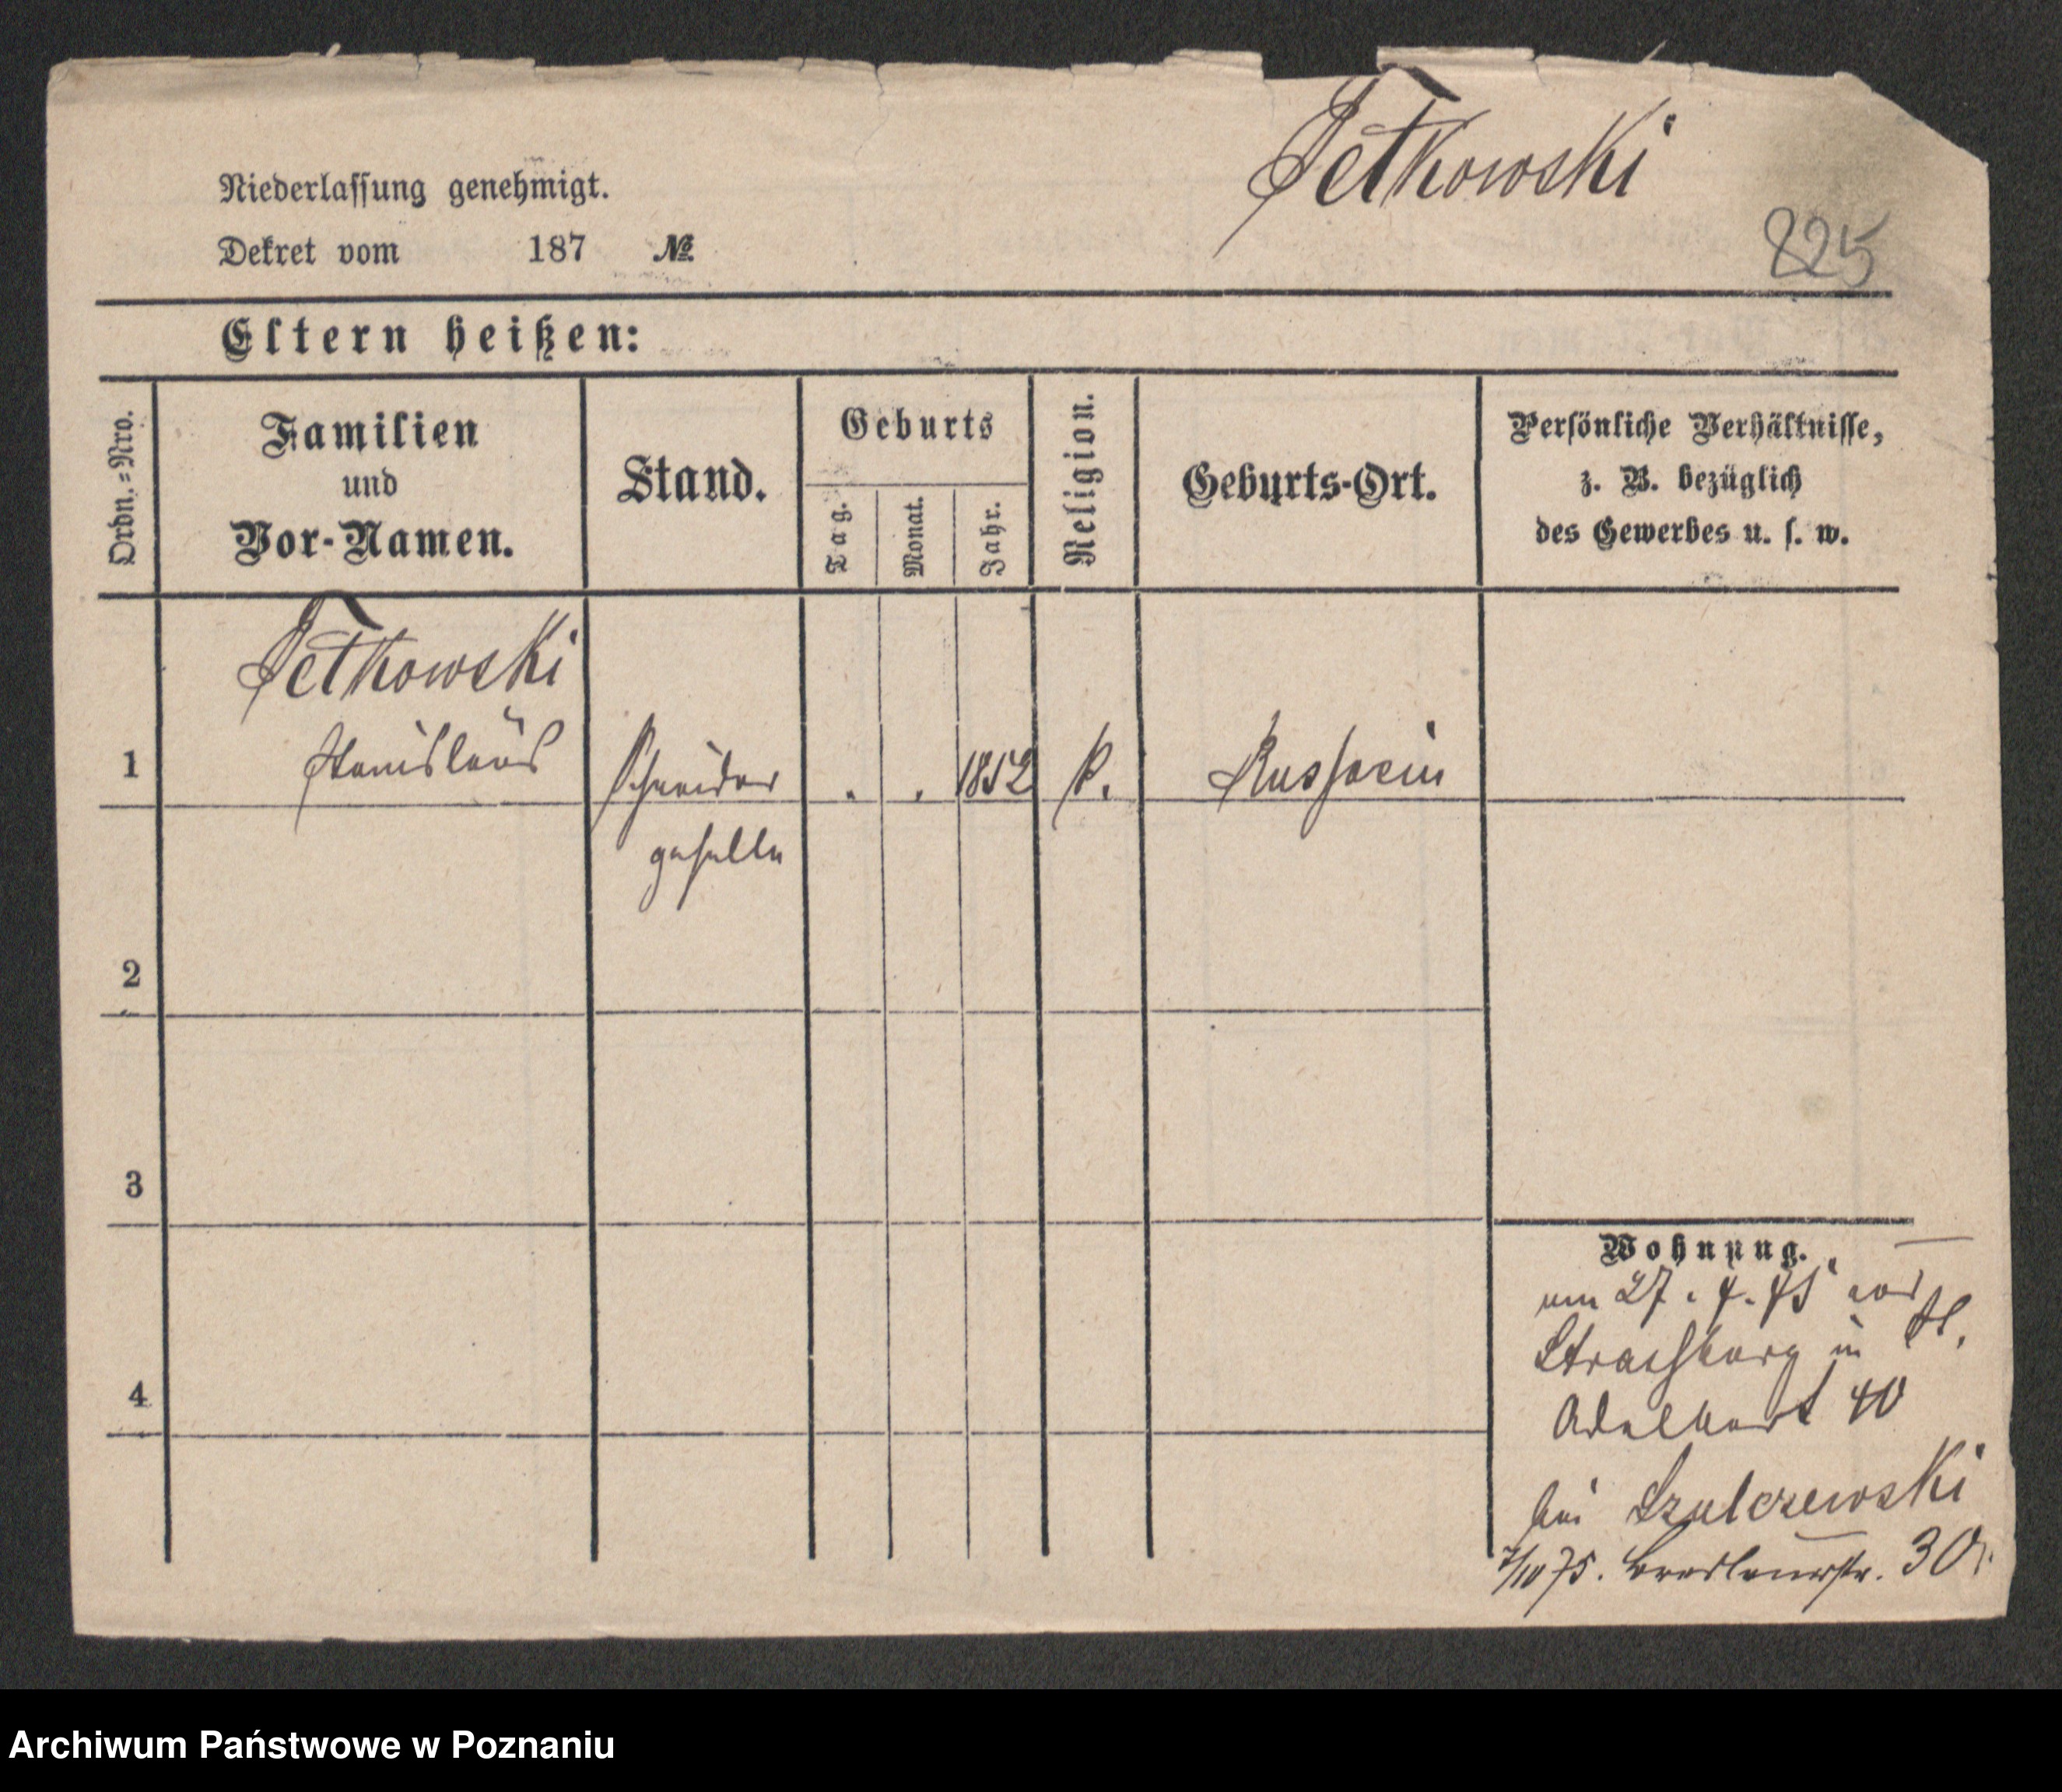 Niederlassung genehmigt.
Dekret vom 187 №
Petkowski
825
Eltern heißen:
Ordn.=Nro.
Familien
und
Vor-Namen.
Stand.
Geburts
Tag.
Monat.
Jahr.
Religion.
Geburts-Ort.
Persönliche Verhältnisse,
z. B. bezüglich
des Gewerbes u. s. w.
Petkowski
1 Stanislaus Schneider . . 1852 k. Russocin
geselle
2
3
4
Wohnung.
am 27. 4. 75 aus
Strassburg in
Adelbert 40
bei Szulczewski
7/10 75. Breslauerstr. 30.
Archiwum Państwowe w Poznaniu